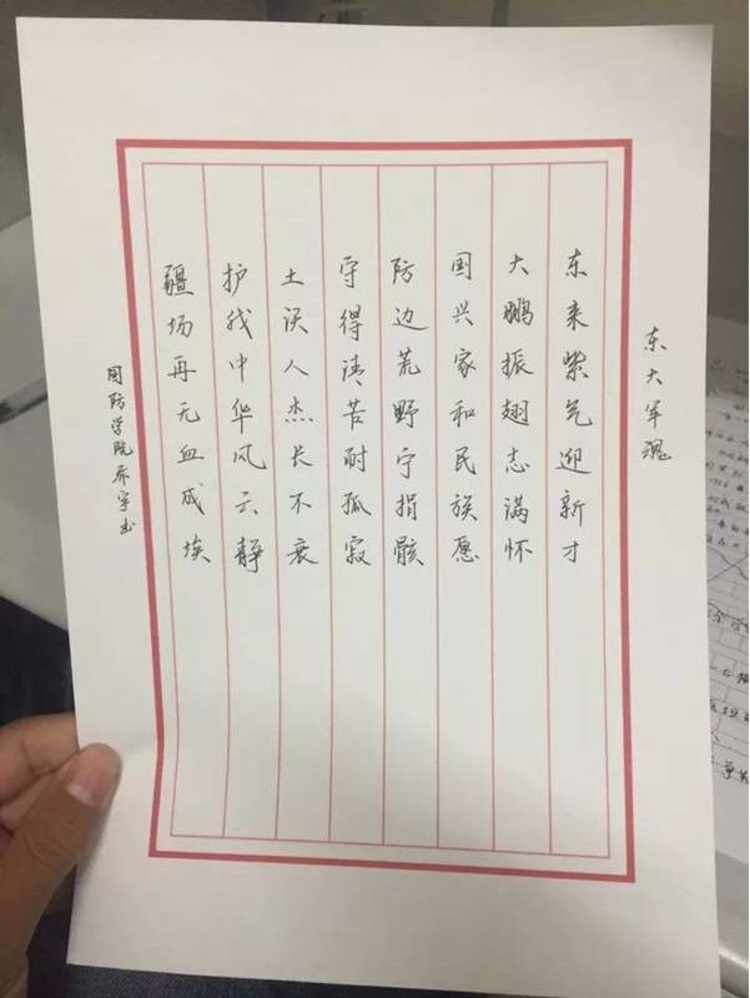 东大军魂
东来紫气迎新才
大鹏振翅志满怀
国兴家和民族愿
防边荒野宁捐骸
守得清苦耐孤寂
土沃人杰长不衰
护我中华风云静
疆场再无血成埃
国防学院乔宇书